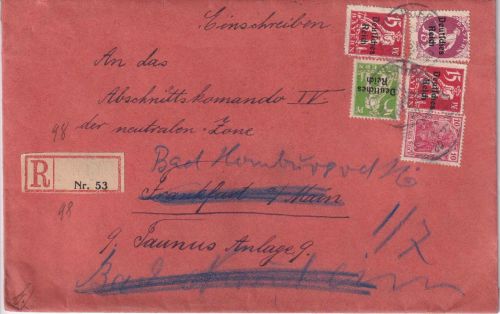 Einschreiben
An das
Abschnittskomando IV
der neutralen Zone
98
Bad Homburg
R Nr. 53
Frankfurt a/Main
98
9. Taunus Anlage 9.
1/7
Bad
Deutsches Reich
15
Deutsches Reich
Deutsches Reich
5
Deutsches Reich
15
10